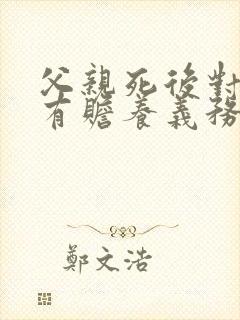 父親死後對
有贍養義務
鄭文浩